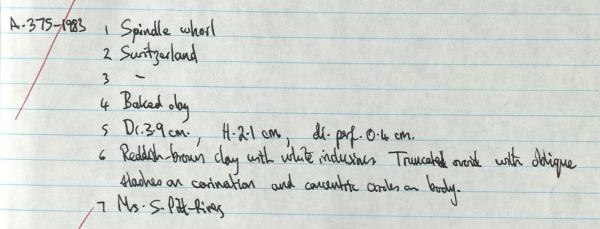 A.375-1983 1 Spindle whorl
2 Switzerland
3 -
4 Baked clay
5 Di. 3.9 cm., H. 2.1 cm, di. perf. 0.4 cm.
6 Reddish-brown clay with white inclusions Truncated ovoid with oblique
slashes on carination and concentric circles on body.
7 Ms. S. Pitt-Rivers